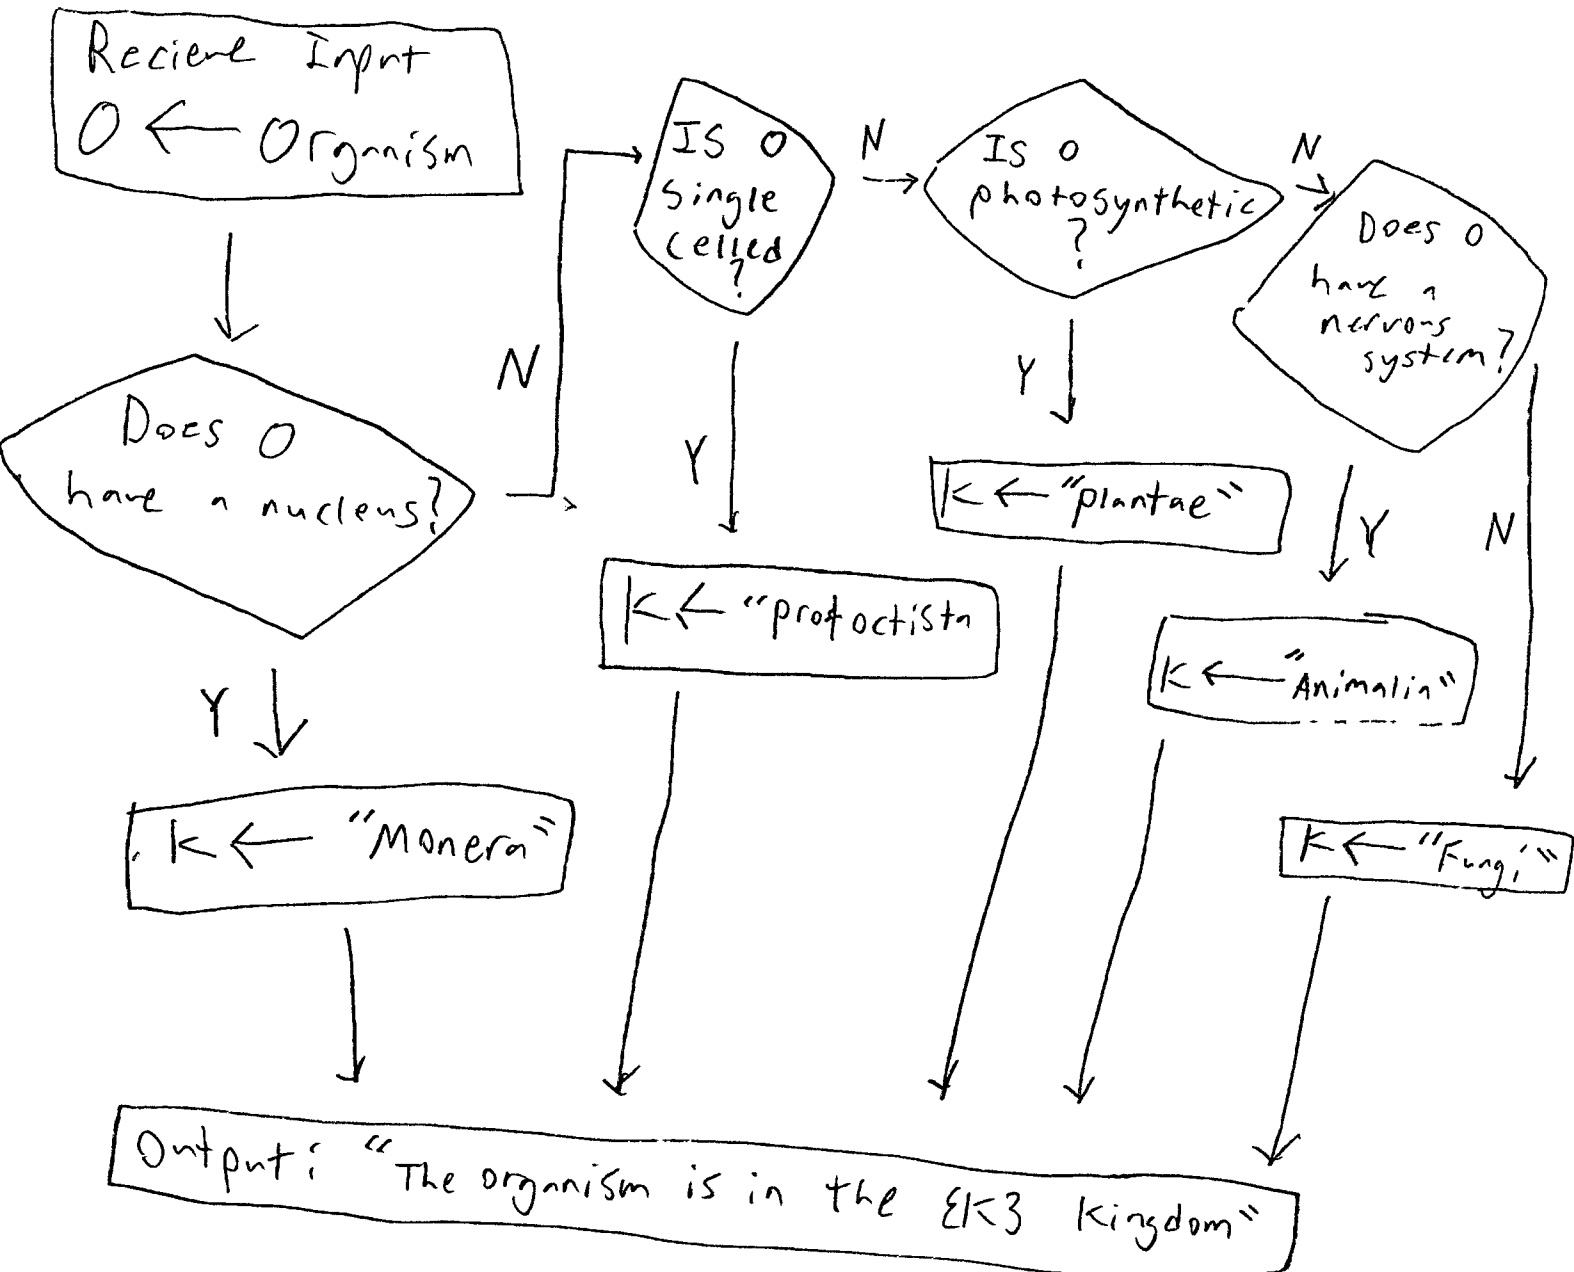 Recieve Input
O ← Organism
Does O
have a nucleus?
N
Y
K ← "Monera"
Is O
Single
celled
?
N
Y
K ← "protoctista
Is O
photosynthetic
?
N
Y
K ← "plantae"
Does O
have a
nervous
system?
Y
N
K ← "Animalia"
K ← "Fungi"
Output: "The organism is in the {K} Kingdom"